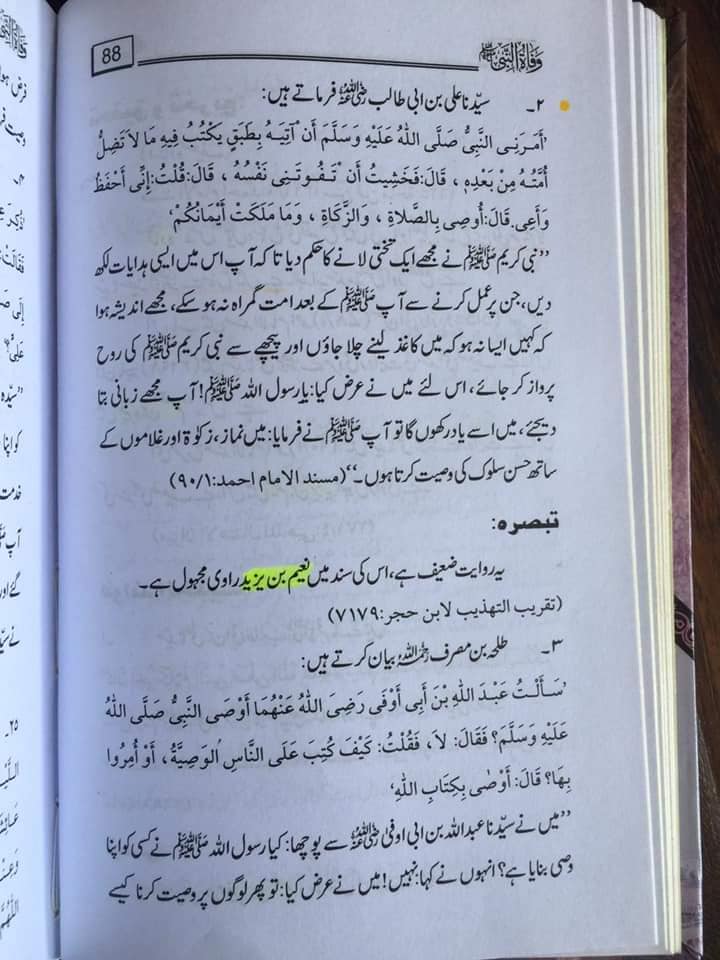 88
وفاۃ النبی ﷺ
۲۔ سیّدنا علی بن ابی طالب رضی اللہ عنہ فرماتے ہیں:
'أَمَرَنِی النَّبِیُّ صَلَّی اللّٰهُ عَلَیْهِ وَسَلَّمَ أَنْ آتِیَهُ بِطَبَقٍ یَکْتُبُ فِیهِ مَا لَا تَضِلُّ
أُمَّتُهُ مِنْ بَعْدِهِ ، قَالَ: فَخَشِیتُ أَنْ تَفُوتَنِی نَفْسُهُ ، قَالَ: قُلْتُ: إِنِّی أَحْفَظُ
وَأَعِی. قَالَ: أُوصِی بِالصَّلَاةِ ، وَالزَّکَاةِ ، وَمَا مَلَکَتْ أَیْمَانُکُمْ'
''نبی کریم ﷺ نے مجھے ایک تختی لانے کا حکم دیا تاکہ آپ اس میں ایسی ہدایات لکھ
دیں، جن پر عمل کرنے سے آپ ﷺ کے بعد امت گمراہ نہ ہو سکے، مجھے اندیشہ ہوا
کہ کہیں ایسا نہ ہو کہ میں کاغذ لینے چلا جاؤں اور پیچھے سے نبی کریم ﷺ کی روح
پرواز کر جائے، اس لئے میں نے عرض کیا: یا رسول اللہ ﷺ! آپ مجھے زبانی بتا
دیجئے، میں اسے یاد رکھوں گا تو آپ ﷺ نے فرمایا: میں نماز، زکوٰۃ اور غلاموں کے
ساتھ حسن سلوک کی وصیت کرتا ہوں۔'' (مسند الامام احمد: ۹۰/۱)
تبصرہ:
یہ روایت ضعیف ہے، اس کی سند میں نعیم بن یزید راوی مجہول ہے۔
(تقریب التھذیب لابن حجر: ۷۱۷۹)
۳۔ طلحہ بن مصرف رحمہ اللہ بیان کرتے ہیں:
'سَأَلْتُ عَبْدَ اللّٰهِ بْنَ أَبِی أَوْفَی رَضِیَ اللّٰهُ عَنْهُمَا أَوْصَی النَّبِیُّ صَلَّی اللّٰهُ
عَلَیْهِ وَسَلَّمَ؟ فَقَالَ: لَا، فَقُلْتُ: کَیْفَ کُتِبَ عَلَی النَّاسِ الْوَصِیَّةُ، أَوْ أُمِرُوا
بِهَا؟ قَالَ: أَوْصٰی بِکِتَابِ اللّٰهِ'
''میں نے سیّدنا عبداللہ بن ابی اوفیٰ رضی اللہ عنہ سے پوچھا: کیا رسول اللہ ﷺ نے کسی کو اپنا
وصی بنایا ہے؟ انہوں نے کہا: نہیں! میں نے عرض کیا: تو پھر لوگوں پر وصیت کرنا کیسے